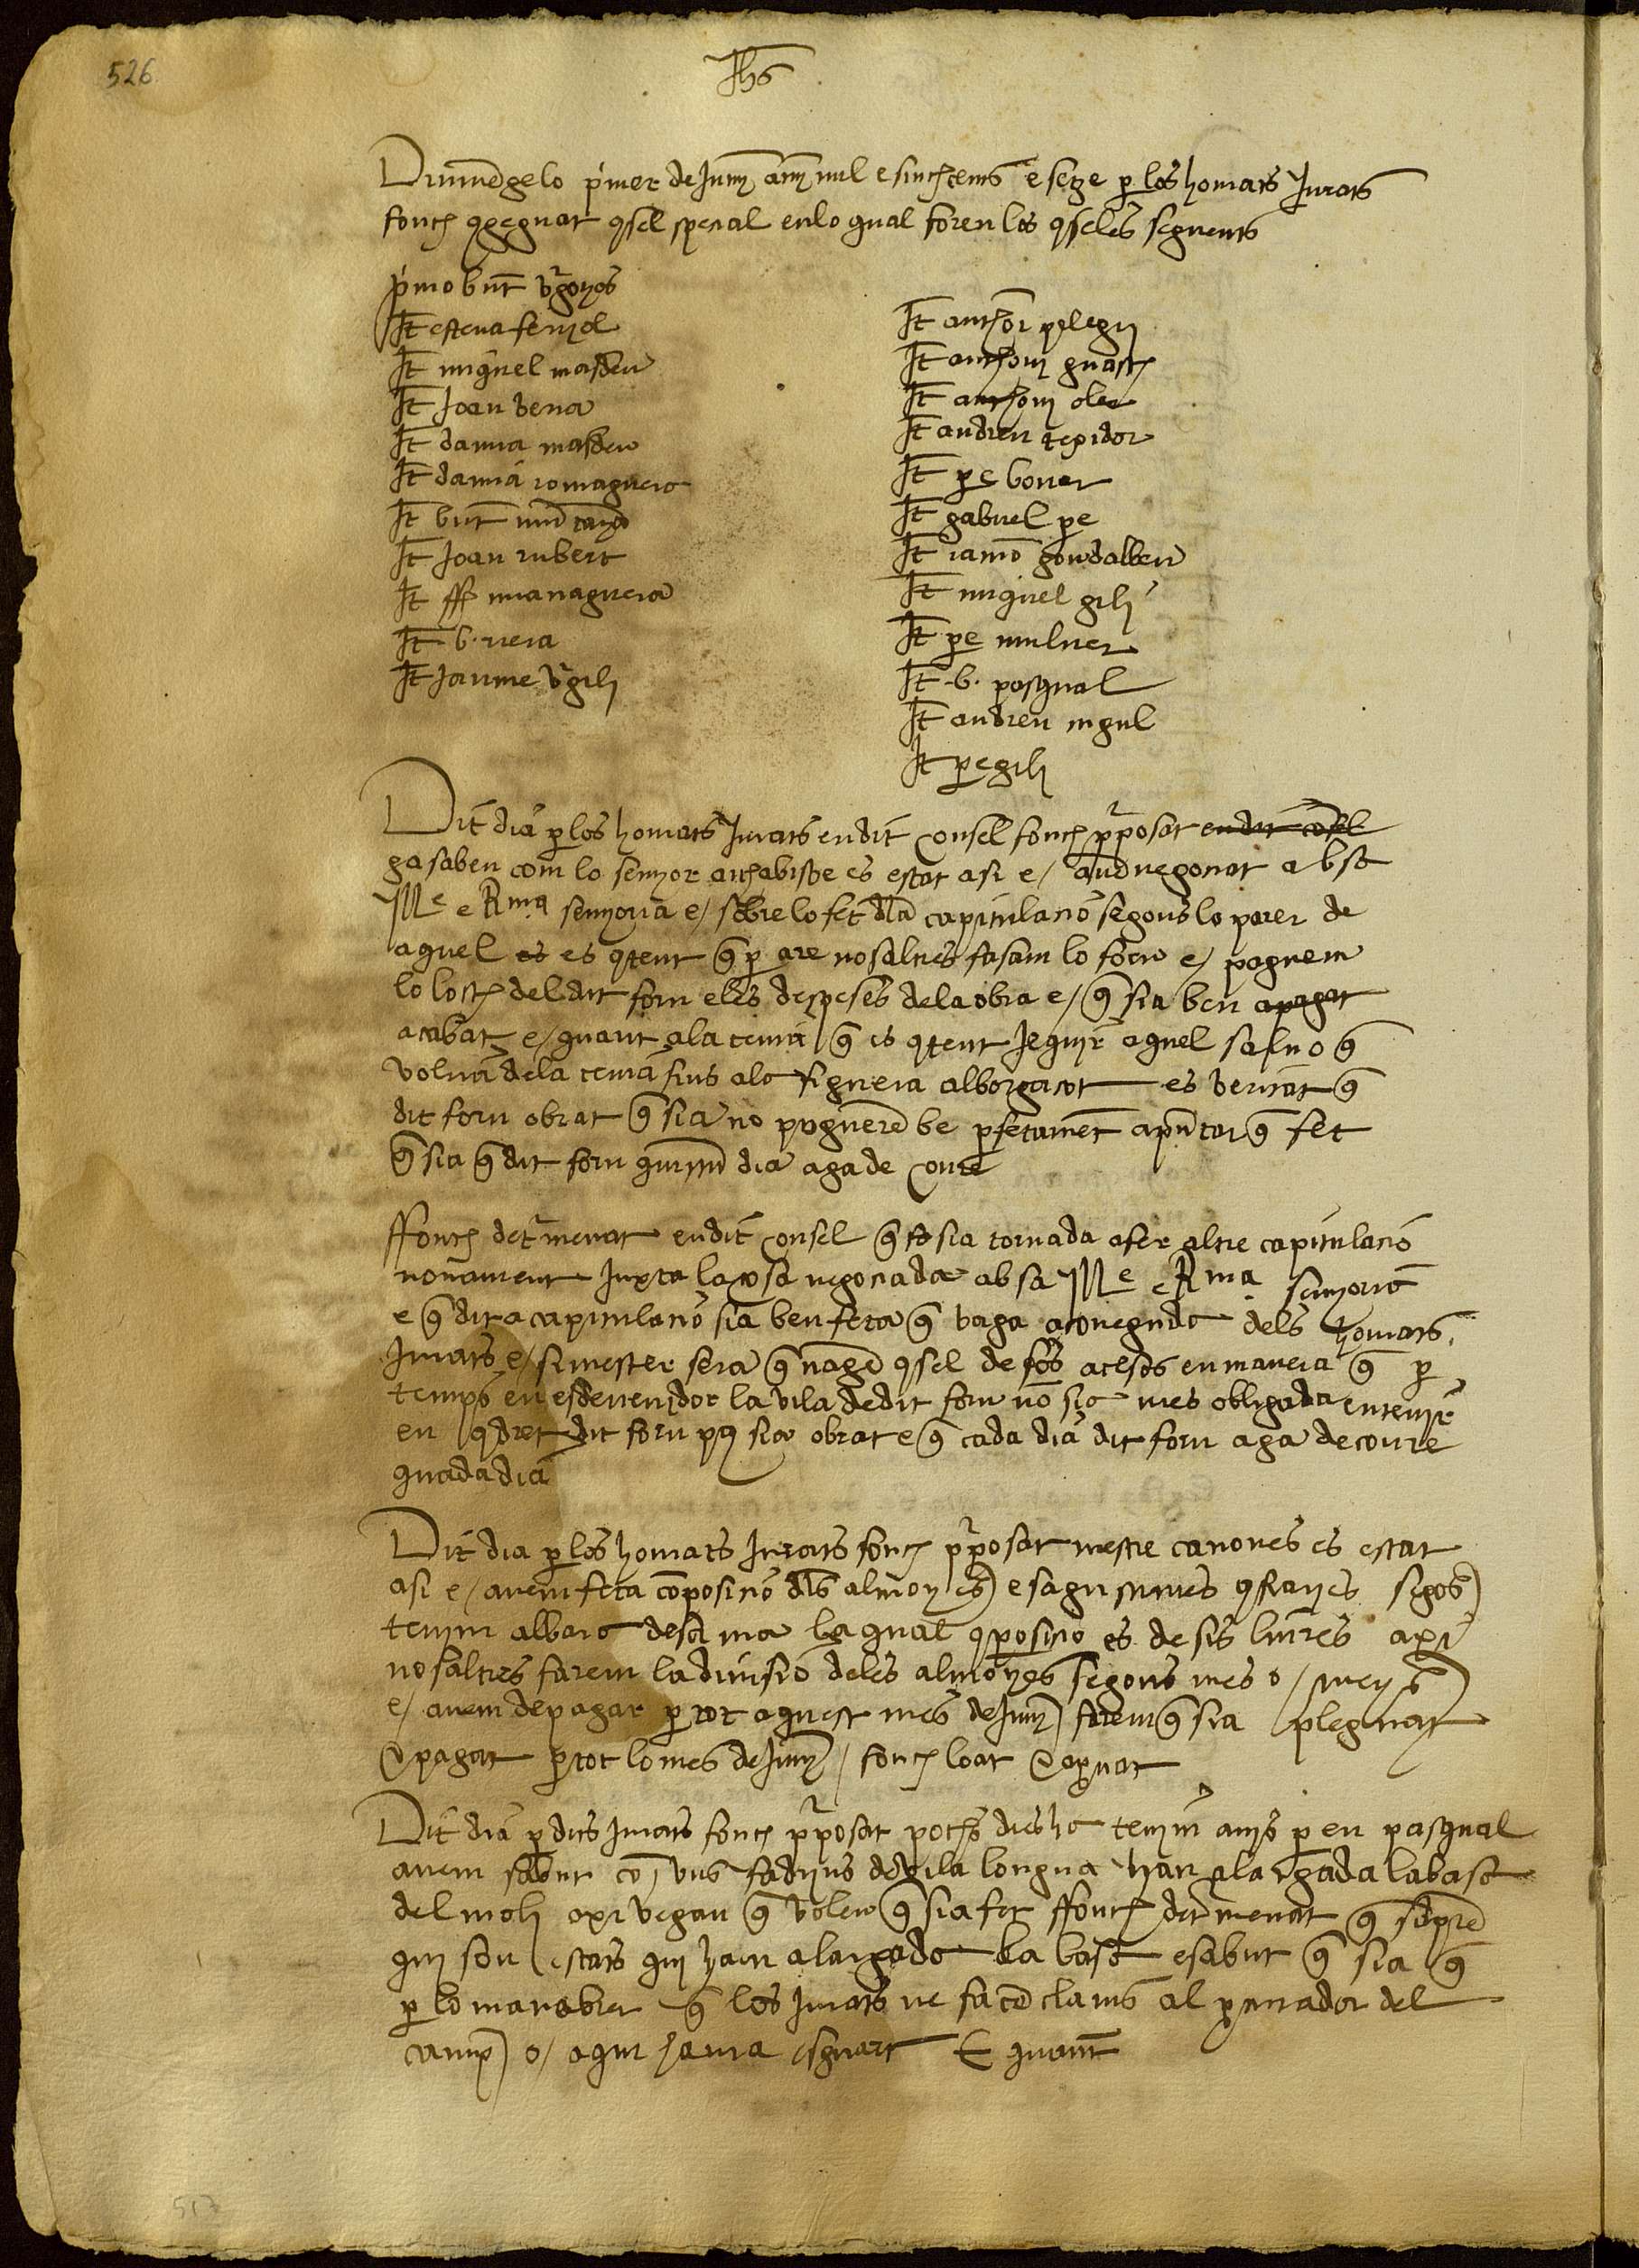 526
Jhs
Diumenge lo primer de Juny any mil e sinchcents e setze per los honrats Jurats
fonch congregat consel special en lo qual foren los conselés seguents
primo bnt vrgonyos
It esteva fenyol
It miquel masdeu
It Joan vena
It damia masdeu
It damiá romaguera
It bnt
It Joan rubert
It ff managuera
It b. riera
It Jaume vrgili
It anthoni pelegri
It anthoni guasch
It anthoni oler
It andreu texidor
It pe bover
It gabriel pe
It ramo gondalbeu
It miquel gili
It pe mulner
It b. pasqual
It andreu mgul
It pe gili
Dit dia per los honrats Jurats en dit consel fonch proposat en dit consel
ja sabeu com lo senyor archabisbe es estat asi e / avem negociat ab sa
Ille e Rma senyoria e / sobre lo fet dla capitulació segons lo parer de
aquel es es content que per are nosaltres fasam lo forn e / paguem
lo loch del dit forn e les despeses de la obra e / que sia ben apagat
acabat e / quant a la cenia que es content jequir aquel salvo que
volria de la cenia fins a la figuera alborgacot es veritat que
dit forn obrat que sia no puguerem be perfetament apuntar que fet
que sia que dit forn dia aga de coure
ffonch determenat en dit consel que sia tornada a fer altre capitulació
novament Juxta la cosa negociada ab sa Ille e Rma senyoria
e que dita capitulació sia ben feta que vaga a coneguda dels honrats
Jurats e / si mester sera que nagen consel de fos acesos en manera que per
temps en esdevenidor la vila de dit forn no sia mes obligada en tenyr
en condret dit forn pus sia obrat e que cada dia dit forn aga de coure
quada dia
Dit dia per los honrats Jurats fonch proposat mestre canones es estat
asi e / avem feta composicio dls almoynes e confraryes segons
tenim albara de sa ma la qual composicio es de sis liures axi
nosaltres farem la divisio de les almoynes segons mes o / meys
e / avem de pagar per tot aquest mes de Juny farem que sia plegat
e pagat per tot lo mes de Juny / fonch loat e aprovat
Dit dia per dits Jurats fonch proposat pochs dies ha tenym avis per en pasqual
avem sabut com uns fadrins de vila longua han alargada la basa
del moli axi vegau que voleu que sia fet ffonch determenat que
qui son estats qui han alargada la basa e sabut que sia que
per lo manobrer que los Jurats ne facen clams al procurador del
camp o / a qui sguart E quant
517